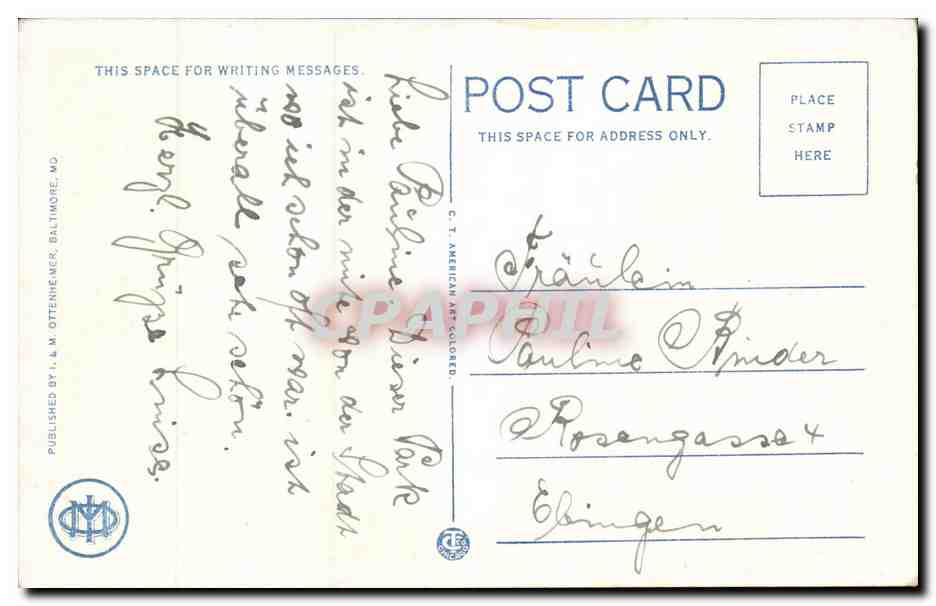 THIS SPACE FOR WRITING MESSAGES.
Liebe Pauline Dieser Park
ist in der mite von der Stadt
wo ich schon oft war. ist
überall sehr schön.
Herzl. Grüsse
PUBLISHED BY I. & M. OTTENHEIMER, BALTIMORE, MD.
C. T. AMERICAN ART COLORED.
CHICAGO
POST CARD
THIS SPACE FOR ADDRESS ONLY.
PLACE
STAMP
HERE
Fräulein
Pauline Binder
Rosengasse 4
Ebingen
CPAPHIL